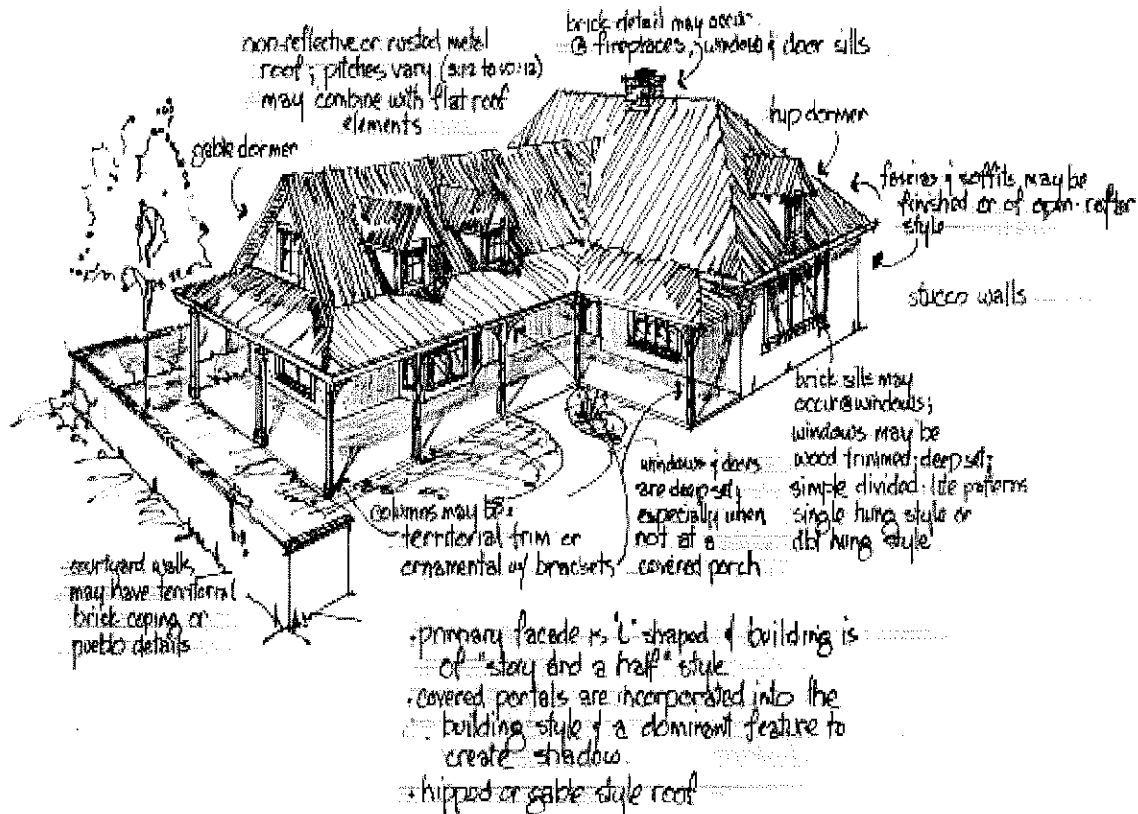 non-reflective or rusted metal
roof; pitches vary (5:12 to 10:12)
may combine with flat roof
elements
brick detail may occur
@ fireplaces, window & door sills
gable dormer
hip dormer
fascias & soffits may be
finished or of open-rafter
style
stucco walls
brick sills may
occur @ windows;
windows may be
wood trimmed; deep set;
simple divided lite patterns
single hung style or
dbl hung style
windows & doors
are deep set;
especially when
not at a
covered porch
columns may be:
territorial trim or
ornamental w/ brackets
courtyard walls
may have territorial
brick coping or
pueblo details
• primary facade is "L" shaped & building is
of "story and a half" style
• covered portals are incorporated into the
building style & a dominant feature to
create shadow
• hipped or gable style roof